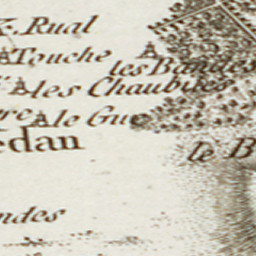 Rual
Touche
les Bandes
les Chaubiers
le Gue
édan
le B
ndes